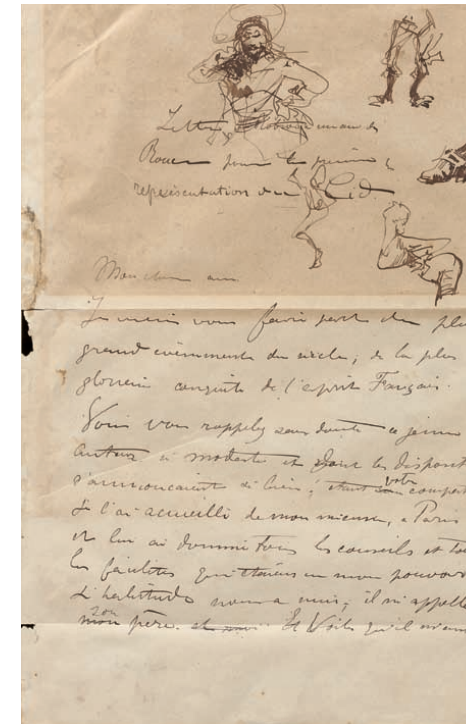 Lettre
Rouen pour la première
représentation du Cid
Mon cher ami
Je viens vous faire part du plus
grand événements du siècle, de la plus
glorieuse conquête de l'esprit Français.
Vous vous rappelez sans doute ce jeune
auteur si modeste et dont les disposit
s'annoncaient si bien; étant votre compat
Je l'ai accueilli de mon mieux, à Paris
et lui ai donné tous les conseils et tou
les facilités qui étaient en mon pouvoir
L'habitude nous a unis; il m'appelle
son père. Et Voilà qu'il vient